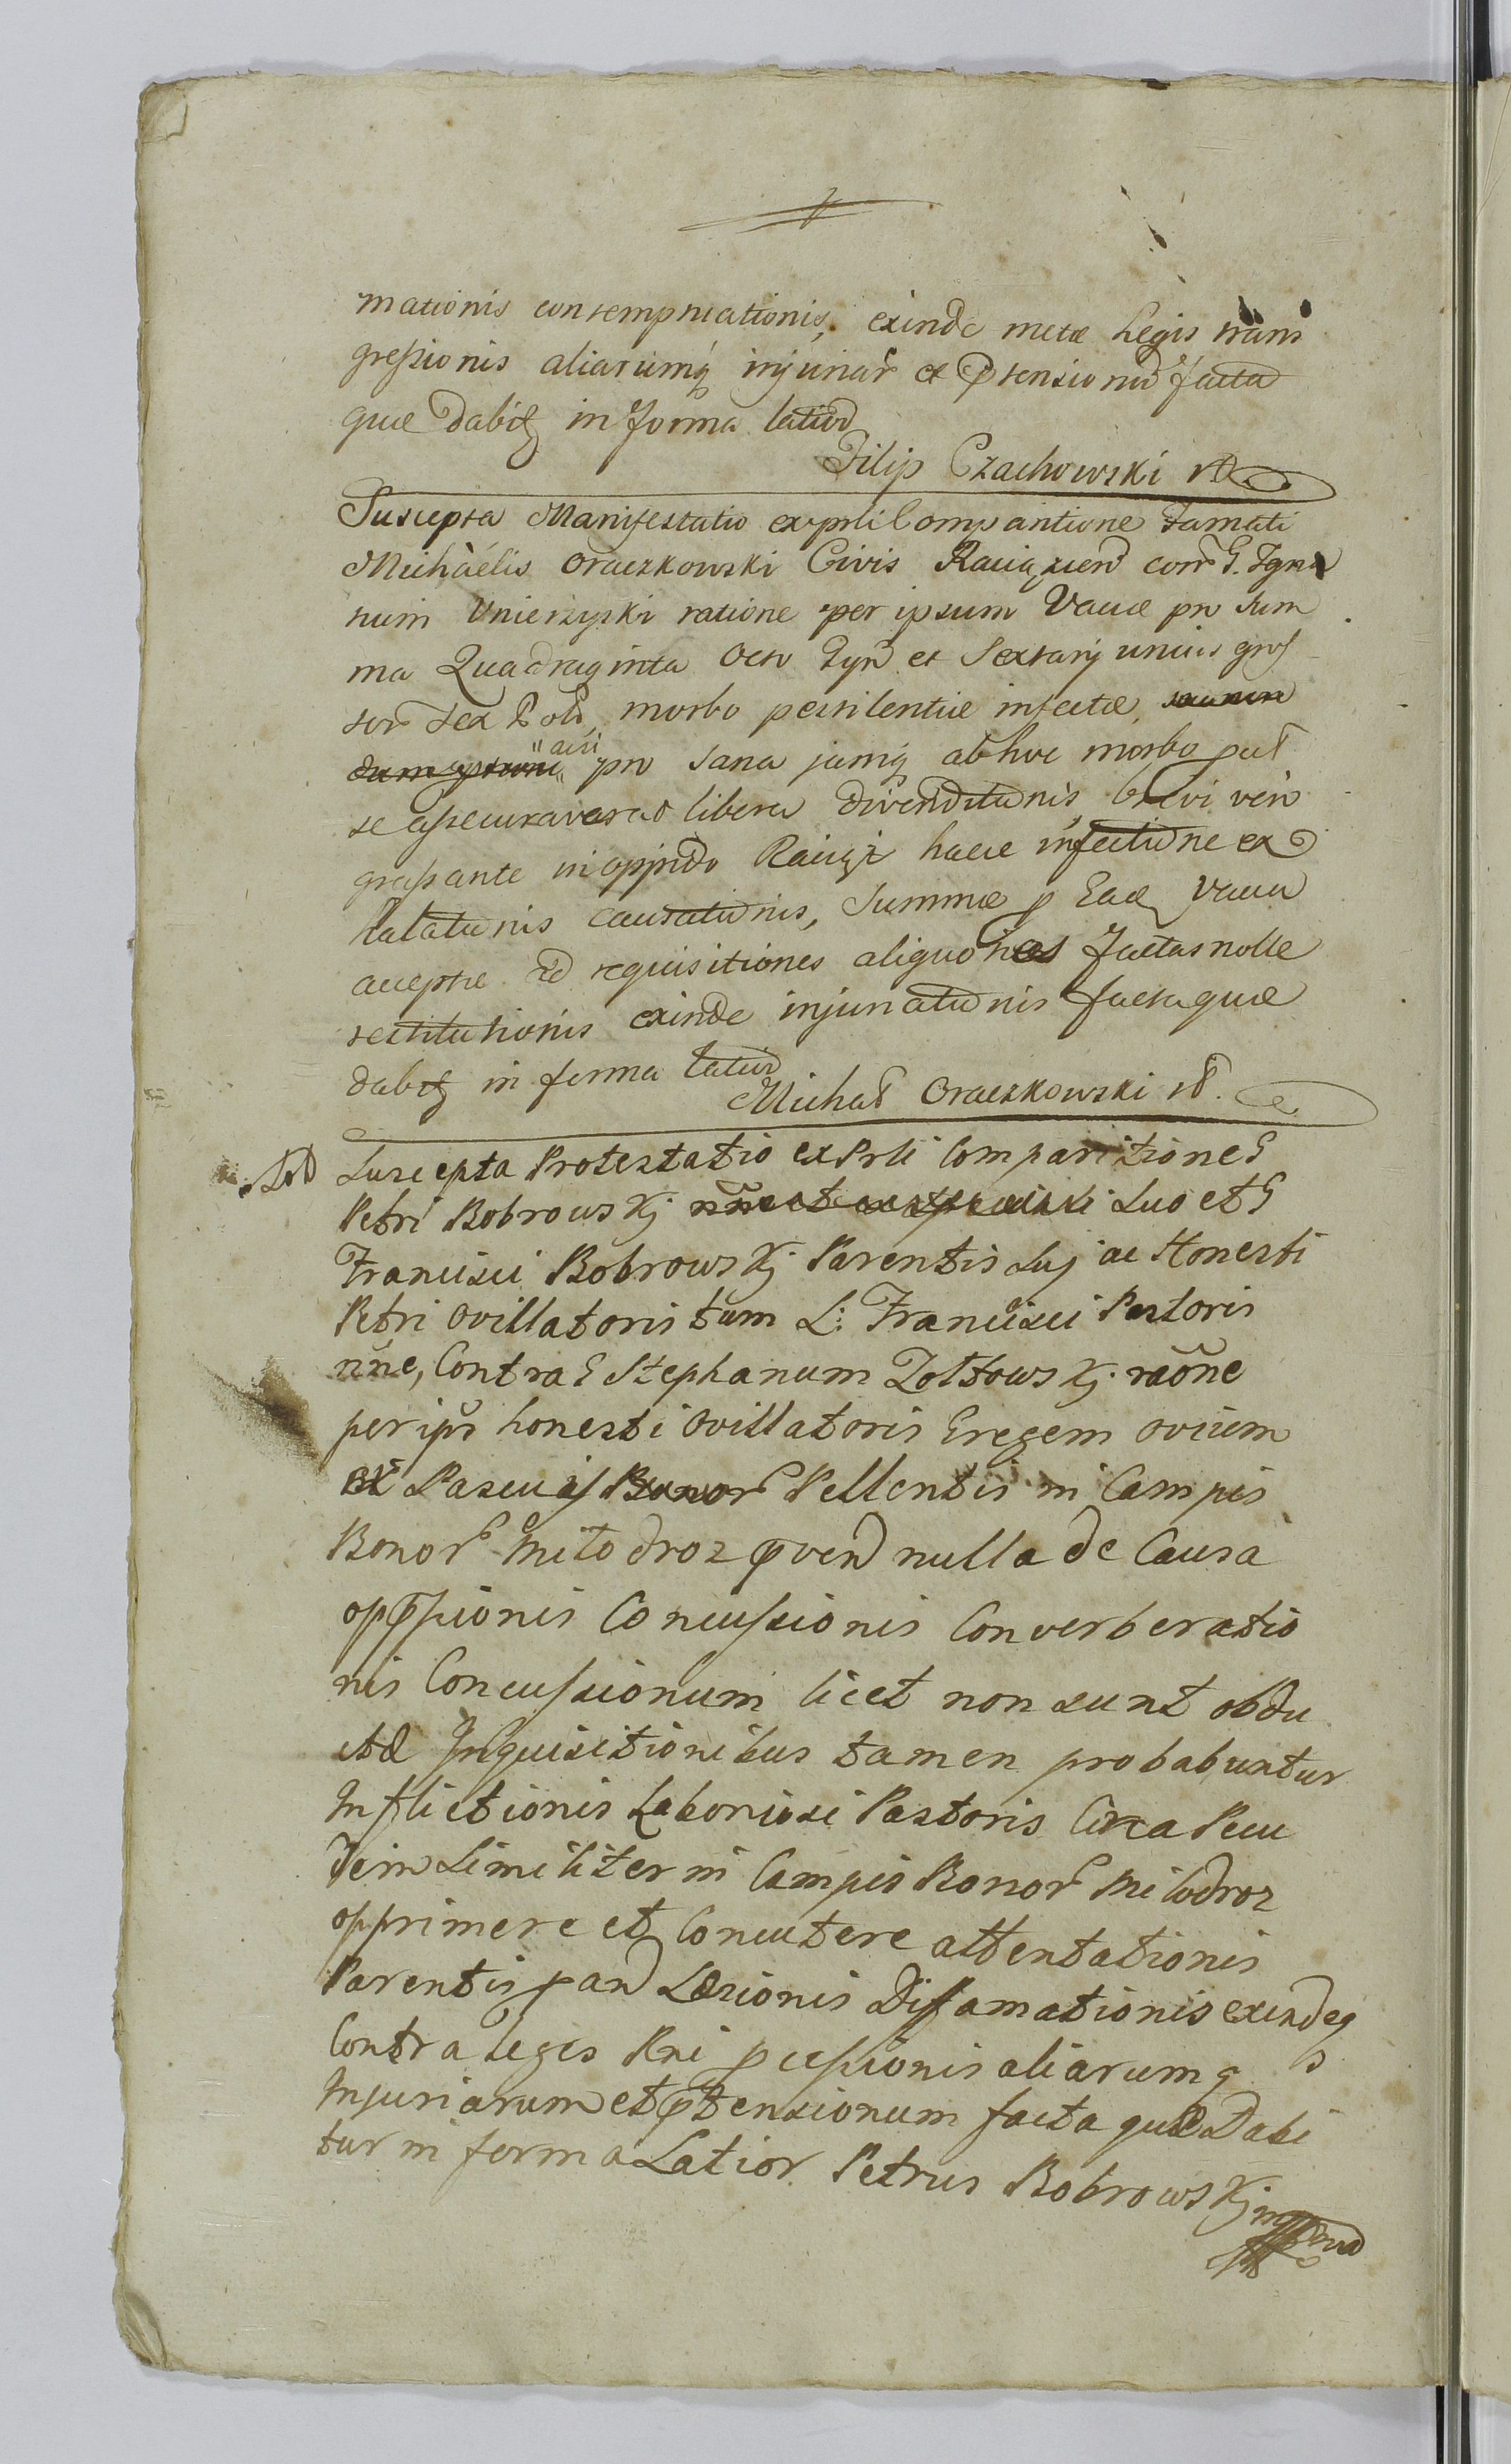 mationis contemptuationis, exinde metæ Legis trans
gressionis aliarumq injuriar et Ptensionu facta
quæ dabitz in forma latior
Filip Czachowski
Suscepta Manifestatio ex prli Comparitione Famati
Michaelis Oraczkowski Civis Raciązien con G. Igna
tium Unierzyski ratione per ipsum Vaccæ pro Sum
ma Quadraginta Octo Tyn et Sextarij unius gros
sor Sex Pol, morbo pestilentiæ infectæ,
pro Sana jamq ab hoc morbo
se assecuraverat libera divenditionis, brevi vero
grassante in oppido Raciąż hacce infectione ex
halationis causationis, Summæ p Ead Vacca
acceptæ ad requisitiones aliquoties factas nolle
restitutionis exinde injuriationis facta quæ
dabitz in forma latior
Michał Oraczkowski
Suscepta Protestatio ex Prli Comparitione G
Petri Bobrowskj Suo et G
Francisci Bobrowskj Parentis Suj ac Honesti
Petri Ovillatoris tum L: Francisci Pastoris
nne, Contra G Stephanum Zołtowskj raone
per ips honesti Ovillatoris Gregem ovium
ex Pascuis Bonor Pellentis in Campis
Bonor Miłodroz pven nulla de Causa
oppssionis Concussionis Converberatio
nis Concussionum licet non sunt obdu
ctæ Inquisitionibus tamen probabuntur
Inflictionis Laboriosi Pastoris Circa Pecu
dem Similiter in Campis Bonor Miłodroz
opprimere et Concutere attentationis
Parentis pan Læsionis Diffamationis exindeq
Contra Leges Rni pcessionis aliarumq
Injuriarum et ptensionum facta quæ Dabi
tur in forma Latior Petrus Bobrowskj